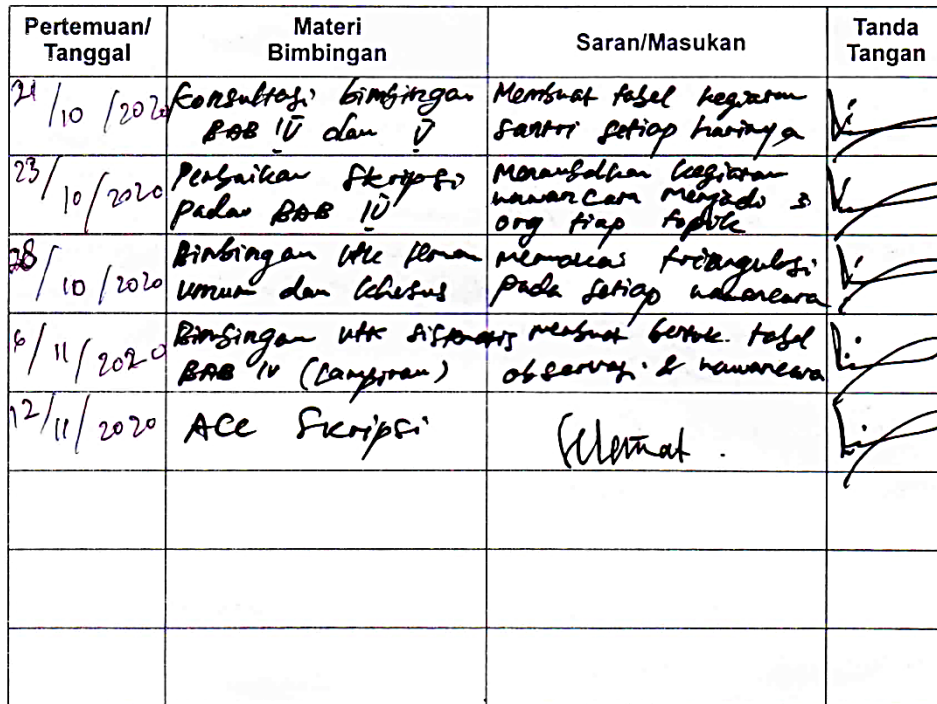 Pertemuan/
Tanggal
Materi
Bimbingan
Saran/Masukan
Tanda
Tangan
21/10/2020
Konsultasi bimbingan
BAB IV dan V
Membuat tabel kegiatan
santri setiap harinya
23/10/2020
Perbaikan Skripsi
Pada BAB IV
Menambahkan kegiatan
wawancara menjadi 3
org tiap topik
28/10/2020
Bimbingan utk
umum dan khusus
triangulasi
pada setiap wawancara
6/11/2020
Bimbingan utk sistematis
BAB IV (Lampiran)
membuat bentuk tabel
observasi & wawancara
12/11/2020
ACC Skripsi
Selamat.